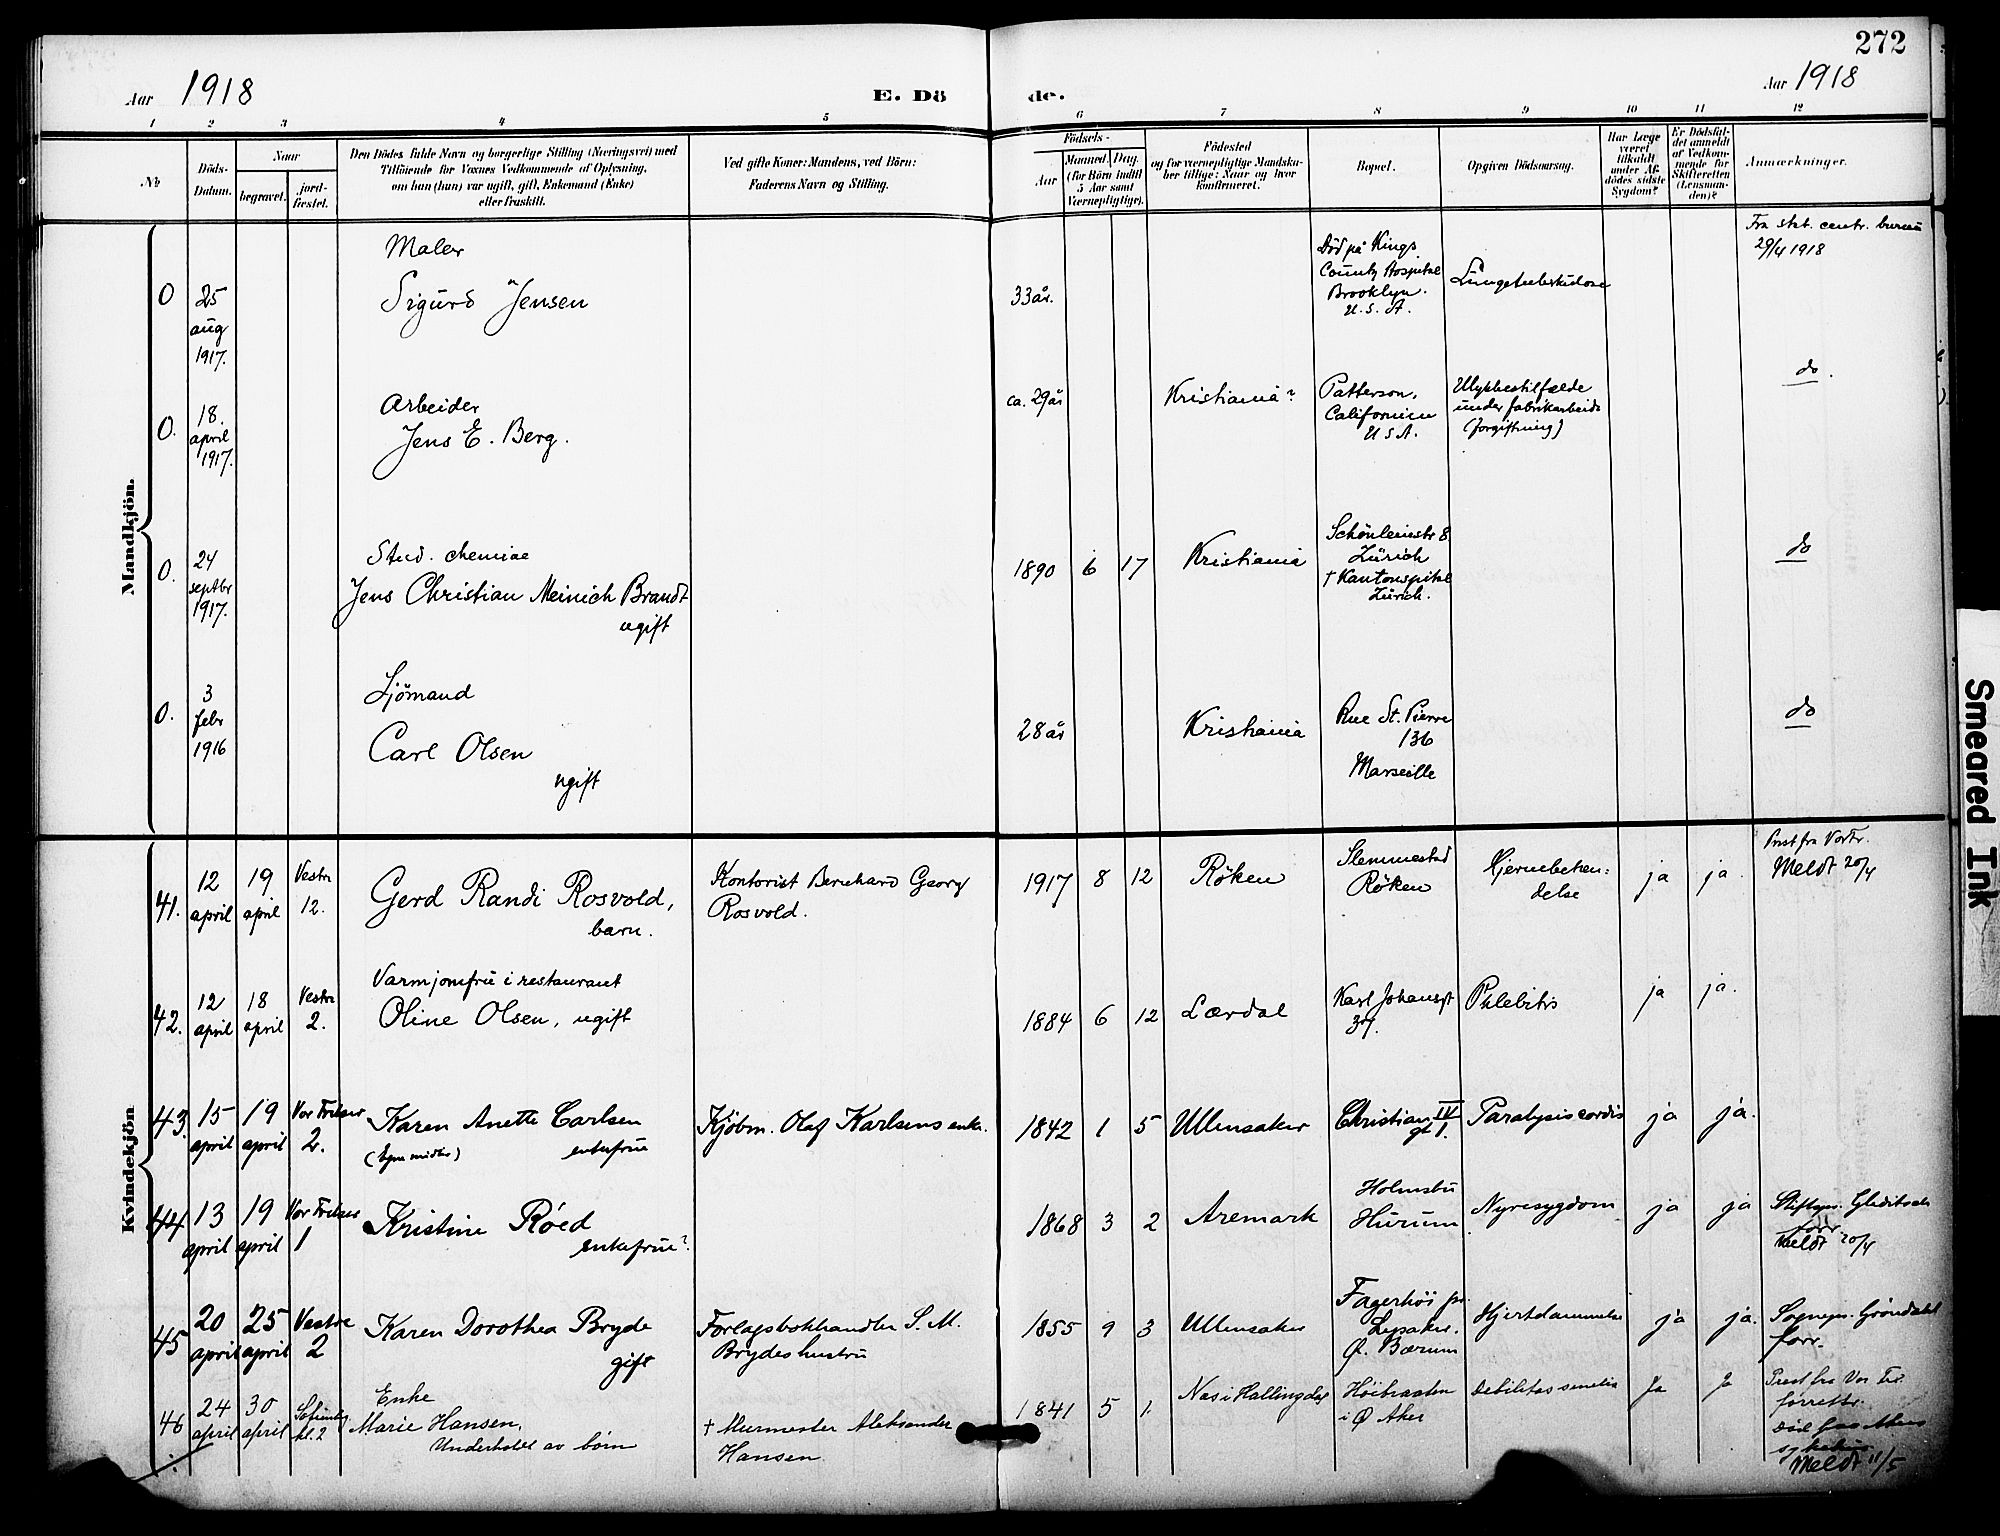 272
Aar 1918
E. Dö
de.
Aar 1918
1 2 3 4 5 6 7 8 9 10 11 12
No
Döds-Datum.
Naar
begravet.
jordfæstet.
Den Dödes fulde Navn og borgerlige Stilling (Næringsvei) med
Tilföiende for Voxnes Vedkommende af Oplysning,
om han (hun) var ugift, gift, Enkemand (Enke)
eller fraskilt.
Ved gifte Koner: Mandens, ved Börn:
Faderens Navn og Stilling.
Födsels-
Aar
Maaned. Dag.
(for Börn indtil
5 Aar samt
Værnepligtige).
Födested
og for værnepligtige Mandska-
ber tillige: Naar og hvor
konfirmeret.
Bopæl.
Opgiven Dödsaarsag.
Har Læge
været
tilkaldt
under Af-
dödes sidste
Sygdom?
Er Dödsfal-
det anmeldt
af Vedkom-
mende for
Skifteretten
(Lensman-
den)?
Anmærkninger.
Mandkjön.
0
25
aug
1917.
Maler
Sigurd Jensen
33 år.
Död på Kings
County Hospital
Brooklyn.
U.S.A.
Lungetuberkulose
Fra stat. centr. bureau
29/4 1918
0.
18.
april
1917.
Arbeider
Jens E. Berg.
ca. 29 år
Kristiania?
Patterson,
Californien
USA.
Ulykkestilfælde
under fabrikarbeide
(forgiftning)
do.
0.
24
septbr
1917.
Stud. chemiae
Jens Christian Meinich Brandt
ugift
1890 6 17
Kristiania
Schönleinstr 8.
Zürich
† Kantonspital
Zürich.
do
0.
3
febr
1916
Sjömand
Carl Olsen
ugift
28 år
Kristiania
Rue St. Pierre
136
Marseille
do
Kvindekjön
41.
12
april
19
april
Vestre
12.
Gerd Randi Rosvold,
barn.
Kontorist Bernhard Georg
Rosvold.
1917 8 12
Röken
Slemmestad
Röken
Hjernebeten:
delse
ja
ja.
Prest fra Vor Fr.
Meldt 20/4
42.
12
april
18
april
Vestre
2.
Varmjomfru i restaurant
Oline Olsen, ugift
1884 6 12
Lærdal
Karl Johansgt
Phlebitis
ja
ja.
43.
15
april
19
april
Vor Frelser
2.
Karen Anette Carlsen
(Egne midler) enkefrue
Kjöbm. Olaf Karlsens enke.
1842 1 5
Ullensaker
Christian IV
gt 1.
Paralysis cordis
ja
ja.
44.
13
april
19
april
Vor Frelser
1
Kristine Röed
enkefrue?
1868 3 2
Aremark
Holmsbu
Hurum
Nyresygdom
ja
ja
Stiftspr. Gleditsch
forr.
Meldt 20/4
45
20
april
25
april
Vestre
2
Karen Dorothea Bryde
gift
Forlagsbokhandler S. M.
Brydes hustru
1855 9 3
Ullensaker
Fagerhöi pr.
Lysaker.
Ö. Bærum
Hjertelammelse
ja
ja.
Sognepr. Gröndahl
forr.
46
24
april
30
april
kl. 2
Enke
Marie Hansen,
Underholdt av börn
† Murmester Aleksander
Hansen.
1841 5 1
Nes i Hallingdal
Höibraaten
i Ö Aker
Debilitas senilis
Ja
Ja
Prest fra Vor Fr.
forrettr.
Död paa Akers
sykehus.
Meldt 11/5
Smeared Ink